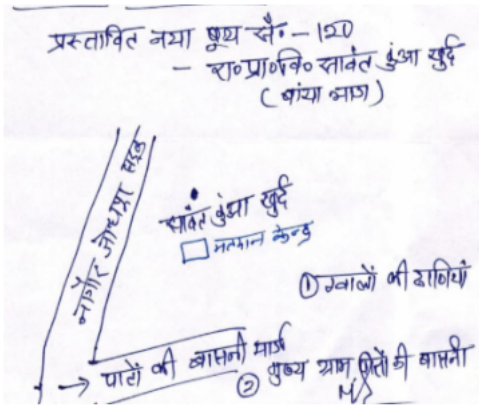 प्रस्तावित नया बूथ सं॰ - 120
- रा॰ प्रा॰ वि॰ सावंत कुंआ खुर्द
(बांया भाग)
नागौर जोधपुर सड़क
सावंत कुंआ खुर्द
मतदान केन्द्र
① ग्वालों की ढाणियां
→ पातों की बासनी मार्ग
② मुख्य ग्राम की बासनी